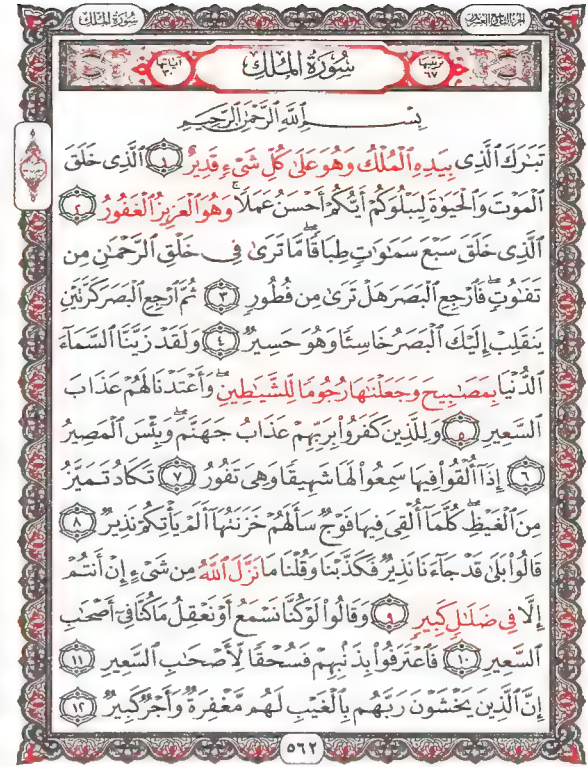 سُورَةُ المُلْكِ
الجُزْءُ التَّاسِعُ وَالعِشْرُونَ
آياتها ٣٠
سُورَةُ المُلْكِ
ترتيبها ٦٧
بِسْمِ اللَّهِ الرَّحْمَٰنِ الرَّحِيمِ
تَبَٰرَكَ ٱلَّذِى بِيَدِهِ ٱلْمُلْكُ وَهُوَ عَلَىٰ كُلِّ شَىْءٍ قَدِيرٌ ١ ٱلَّذِى خَلَقَ
ٱلْمَوْتَ وَٱلْحَيَوٰةَ لِيَبْلُوَكُمْ أَيُّكُمْ أَحْسَنُ عَمَلًا ۚ وَهُوَ ٱلْعَزِيزُ ٱلْغَفُورُ ٢
ٱلَّذِى خَلَقَ سَبْعَ سَمَٰوَٰتٍ طِبَاقًا ۖ مَّا تَرَىٰ فِى خَلْقِ ٱلرَّحْمَٰنِ مِن
تَفَٰوُتٍ ۖ فَٱرْجِعِ ٱلْبَصَرَ هَلْ تَرَىٰ مِن فُطُورٍ ٣ ثُمَّ ٱرْجِعِ ٱلْبَصَرَ كَرَّتَيْنِ
يَنقَلِبْ إِلَيْكَ ٱلْبَصَرُ خَاسِئًا وَهُوَ حَسِيرٌ ٤ وَلَقَدْ زَيَّنَّا ٱلسَّمَآءَ
ٱلدُّنْيَا بِمَصَٰبِيحَ وَجَعَلْنَٰهَا رُجُومًا لِّلشَّيَٰطِينِ ۖ وَأَعْتَدْنَا لَهُمْ عَذَابَ
ٱلسَّعِيرِ ٥ وَلِلَّذِينَ كَفَرُوا۟ بِرَبِّهِمْ عَذَابُ جَهَنَّمَ ۖ وَبِئْسَ ٱلْمَصِيرُ
٦ إِذَآ أُلْقُوا۟ فِيهَا سَمِعُوا۟ لَهَا شَهِيقًا وَهِىَ تَفُورُ ٧ تَكَادُ تَمَيَّزُ
مِنَ ٱلْغَيْظِ ۖ كُلَّمَآ أُلْقِىَ فِيهَا فَوْجٌ سَأَلَهُمْ خَزَنَتُهَآ أَلَمْ يَأْتِكُمْ نَذِيرٌ ٨
قَالُوا۟ بَلَىٰ قَدْ جَآءَنَا نَذِيرٌ فَكَذَّبْنَا وَقُلْنَا مَا نَزَّلَ ٱللَّهُ مِن شَىْءٍ إِنْ أَنتُمْ
إِلَّا فِى ضَلَٰلٍ كَبِيرٍ ٩ وَقَالُوا۟ لَوْ كُنَّا نَسْمَعُ أَوْ نَعْقِلُ مَا كُنَّا فِىٓ أَصْحَٰبِ
ٱلسَّعِيرِ ١٠ فَٱعْتَرَفُوا۟ بِذَنۢبِهِمْ فَسُحْقًا لِّأَصْحَٰبِ ٱلسَّعِيرِ ١١
إِنَّ ٱلَّذِينَ يَخْشَوْنَ رَبَّهُم بِٱلْغَيْبِ لَهُم مَّغْفِرَةٌ وَأَجْرٌ كَبِيرٌ ١٢
٥٦٢